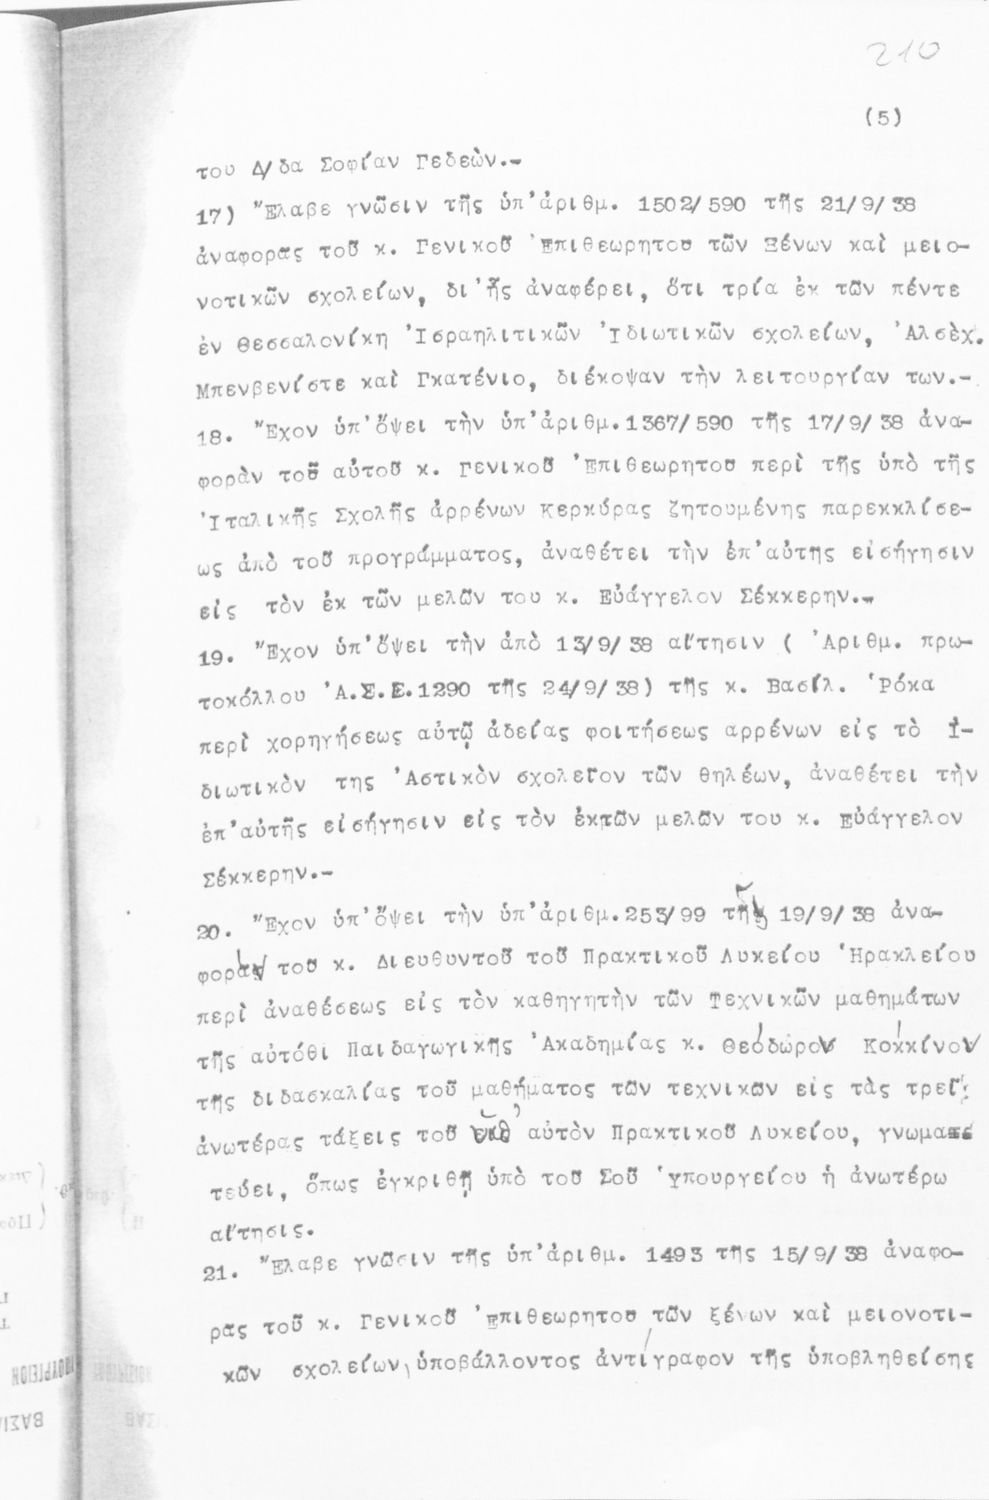 210
(5)
του Δ/δα Σοφίαν Γεδεὼν.-
17) Ἔλαβε γνῶσιν τῆς ὑπ'ἀριθμ. 1502/590 τῆς 21/9/38
ἀναφορᾶς τοῦ κ. Γενικοῦ Ἐπιθεωρητοῦ τῶν Ξένων καὶ μειο-
νοτικῶν σχολείων, δι'ἧς ἀναφέρει, ὅτι τρία ἐκ τῶν πέντε
ἐν Θεσσαλονίκη Ἰσραηλιτικῶν Ἰδιωτικῶν σχολείων, Ἀλσὲχ.
Μπενβενίστε καὶ Γκατένιο, διέκοψαν τὴν λειτουργίαν των.-
18. Ἔχον ὑπ'ὄψει τὴν ὑπ'ἀριθμ.1367/590 τῆς 17/9/38 ἀνα-
φορὰν τοῦ αὐτοῦ κ. Γενικοῦ Ἐπιθεωρητοῦ περὶ τῆς ὑπὸ τῆς
Ἰταλικῆς Σχολῆς ἀρρένων Κερκύρας ζητουμένης παρεκκλίσε-
ως ἀπὸ τοῦ προγράμματος, ἀναθέτει τὴν ἐπ'αὐτῆς εἰσήγησιν
εἰς τὸν ἐκ τῶν μελῶν του κ. Εὐάγγελον Σέκκερην.-
19. Ἔχον ὑπ'ὄψει τὴν ἀπὸ 13/9/38 αἴτησιν ( Ἀριθμ. πρω-
τοκόλλου Ἀ.Σ.Ε.1290 τῆς 24/9/38) τῆς κ. Βασίλ. Ῥόκα
περὶ χορηγήσεως αὐτῷ ἀδείας φοιτήσεως αρρένων εἰς τὸ Ἰ-
διωτικὸν της Ἀστικὸν σχολεῖον τῶν θηλέων, ἀναθέτει τὴν
ἐπ'αὐτῆς εἰσήγησιν εἰς τὸν ἐκτῶν μελῶν του κ. Εὐάγγελον
Σέκκερην.-
20. Ἔχον ὑπ'ὄψει τὴν ὑπ'ἀριθμ.253/99 τῆς 19/9/38 ἀνα-
φορὰν του κ. Διευθυντοῦ τοῦ Πρακτικοῦ Λυκείου Ἡρακλείου
περὶ ἀναθέσεως εἰς τὸν καθηγητὴν τῶν Τεχνικῶν μαθημάτων
τῆς αὐτόθι Παιδαγωγικῆς Ἀκαδημίας κ. Θεόδωρον Κόκκινον
τῆς διδασκαλίας τοῦ μαθήματος τῶν τεχνικῶν εἰς τὰς τρεῖς
ἀνωτέρας τάξεις τοῦ ὑπ' αὐτὸν Πρακτικοῦ Λυκείου, γνωμα
τεύει, ὅπως ἐγκριθῇ ὑπὸ τοῦ Σοῦ Ὑπουργείου ἡ ἀνωτέρω
αἴτησις.
21. Ἔλαβε γνῶσιν τῆς ὑπ'ἀριθμ. 1493 τῆς 15/9/38 ἀναφο-
ρᾶς τοῦ κ. Γενικοῦ Ἐπιθεωρητοῦ τῶν ξένων καὶ μειονοτι-
κῶν σχολείων, ὑποβάλλοντος ἀντίγραφον τῆς ὑποβληθείσης